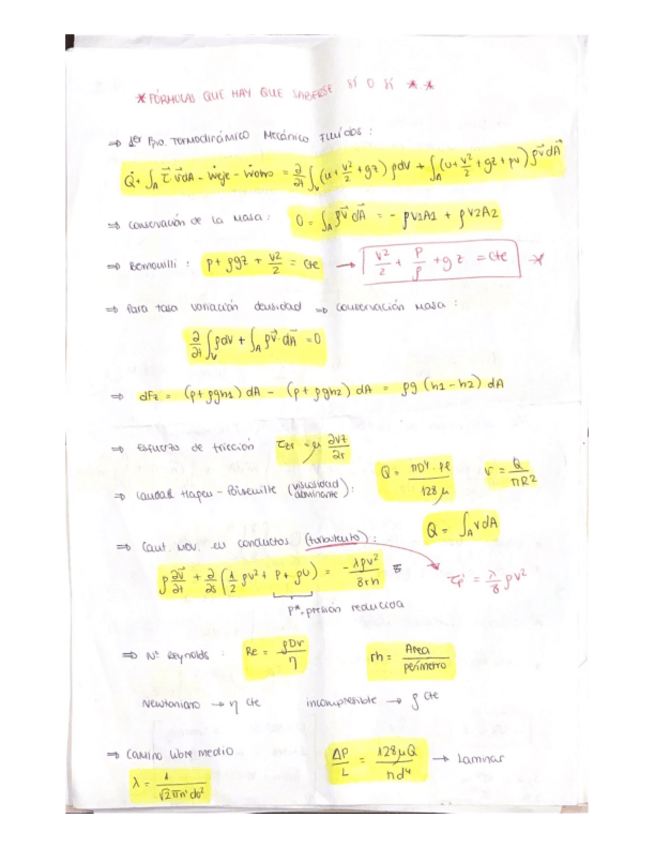 * FÓRMULAS QUE HAY QUE SABERSE SÍ O SÍ * *
⇒ 1er Ppo. Termodinámico Mecánico Fluidos:
Q̇ + ∫_A τ⃗ v⃗ dA - Ẇeje - Ẇotro = ∂/∂t ∫_V (u + v²/2 + gz) ρdv + ∫_A (u + v²/2 + gz + pv) ρv⃗ dA⃗
⇒ Conservación de la Masa: 0 = ∫_A ρv⃗ dA⃗ = - ρV1A1 + ρV2A2
⇒ Bernouilli: p + ρgz + v²/2 = cte → v²/2 + P/ρ + gz = cte *
⇒ Para tasa variación densidad ⇒ conservación masa:
∂/∂t ∫_V ρdv + ∫_A ρv⃗ · dA⃗ = 0
⇒ dFz = (p + ρgh1) dA - (p + ρgh2) dA = ρg (h1 - h2) dA
⇒ Esfuerzo de fricción τzr = μ ∂vz/∂r
⇒ Caudal Hagen-Poiseuille (viscosidad dominante): Q = πD⁴ · Pl / 128μ v = Q / πR2
Q = ∫_A v dA
⇒ Cant. Mov. en conductos (turbulento):
ρ ∂v⃗/∂t + ∂/∂s (1/2 ρv² + P + ρU) = -λρv² / 8rh
τf = λ/8 ρv²
P*. presión reducida
⇒ Nº Reynolds: Re = ρDv / η rh = Área / perímetro
Newtoniano → η cte incompresible → ρ cte
⇒ Camino libre medio ΔP/L = 128μQ / πd⁴ → Laminar
λ = 1 / √2πn'do²